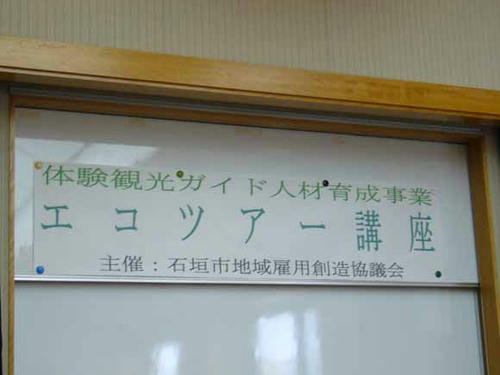 体験観光ガイド人材育成事業
エコツアー講座
主催：石垣市地域雇用創造協議会